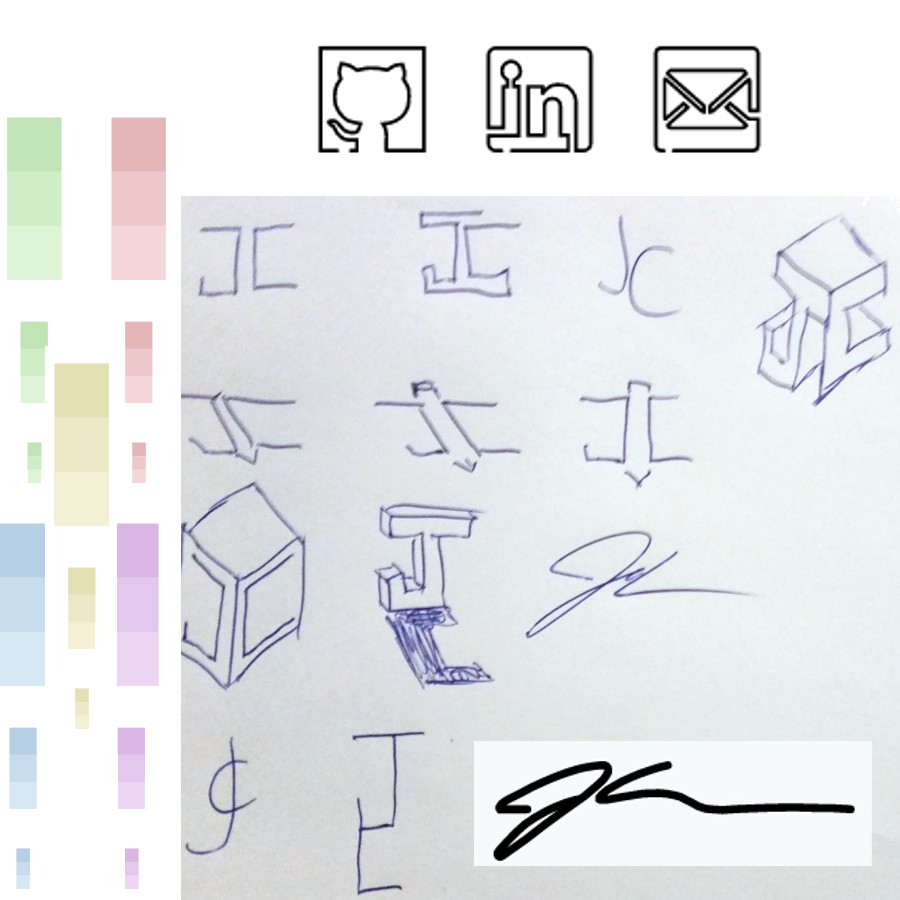 in
JC JC JC JC
JC JC JC
JC JC JC
JC JC JC